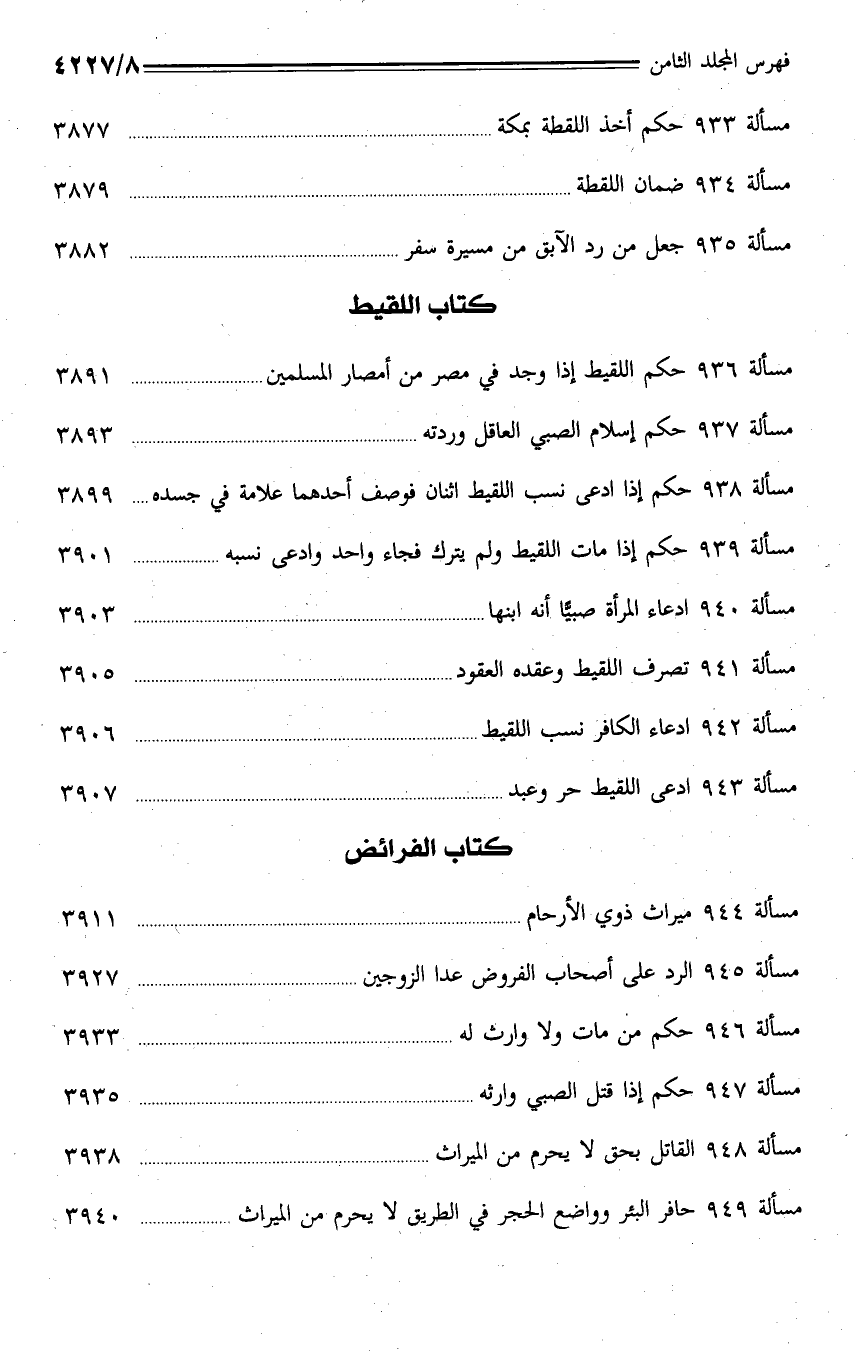 فهرس المجلد الثامن ٤٢٢٧/٨
مسألة ٩٣٣ حكم أخذ اللقطة بمكة ٣٨٧٧
مسألة ٩٣٤ ضمان اللقطة ٣٨٧٩
مسألة ٩٣٥ جعل من رد الآبق من مسيرة سفر ٣٨٨٢
كتاب اللقيط
مسألة ٩٣٦ حكم اللقيط إذا وجد في مصر من أمصار المسلمين ٣٨٩١
مسألة ٩٣٧ حكم إسلام الصبي العاقل وردته ٣٨٩٣
مسألة ٩٣٨ حكم إذا ادعى نسب اللقيط اثنان فوصف أحدهما علامة في جسده ٣٨٩٩
مسألة ٩٣٩ حكم إذا مات اللقيط ولم يترك فجاء واحد وادعى نسبه ٣٩٠١
مسألة ٩٤٠ ادعاء المرأة صبيًّا أنه ابنها ٣٩٠٣
مسألة ٩٤١ تصرف اللقيط وعقده العقود ٣٩٠٥
مسألة ٩٤٢ ادعاء الكافر نسب اللقيط ٣٩٠٦
مسألة ٩٤٣ ادعى اللقيط حر وعبد ٣٩٠٧
كتاب الفرائض
مسألة ٩٤٤ ميراث ذوي الأرحام ٣٩١١
مسألة ٩٤٥ الرد على أصحاب الفروض عدا الزوجين ٣٩٢٧
مسألة ٩٤٦ حكم من مات ولا وارث له ٣٩٣٣
مسألة ٩٤٧ حكم إذا قتل الصبي وارثه ٣٩٣٥
مسألة ٩٤٨ القاتل بحق لا يحرم من الميراث ٣٩٣٨
مسألة ٩٤٩ حافر البئر وواضع الحجر في الطريق لا يحرم من الميراث ٣٩٤٠